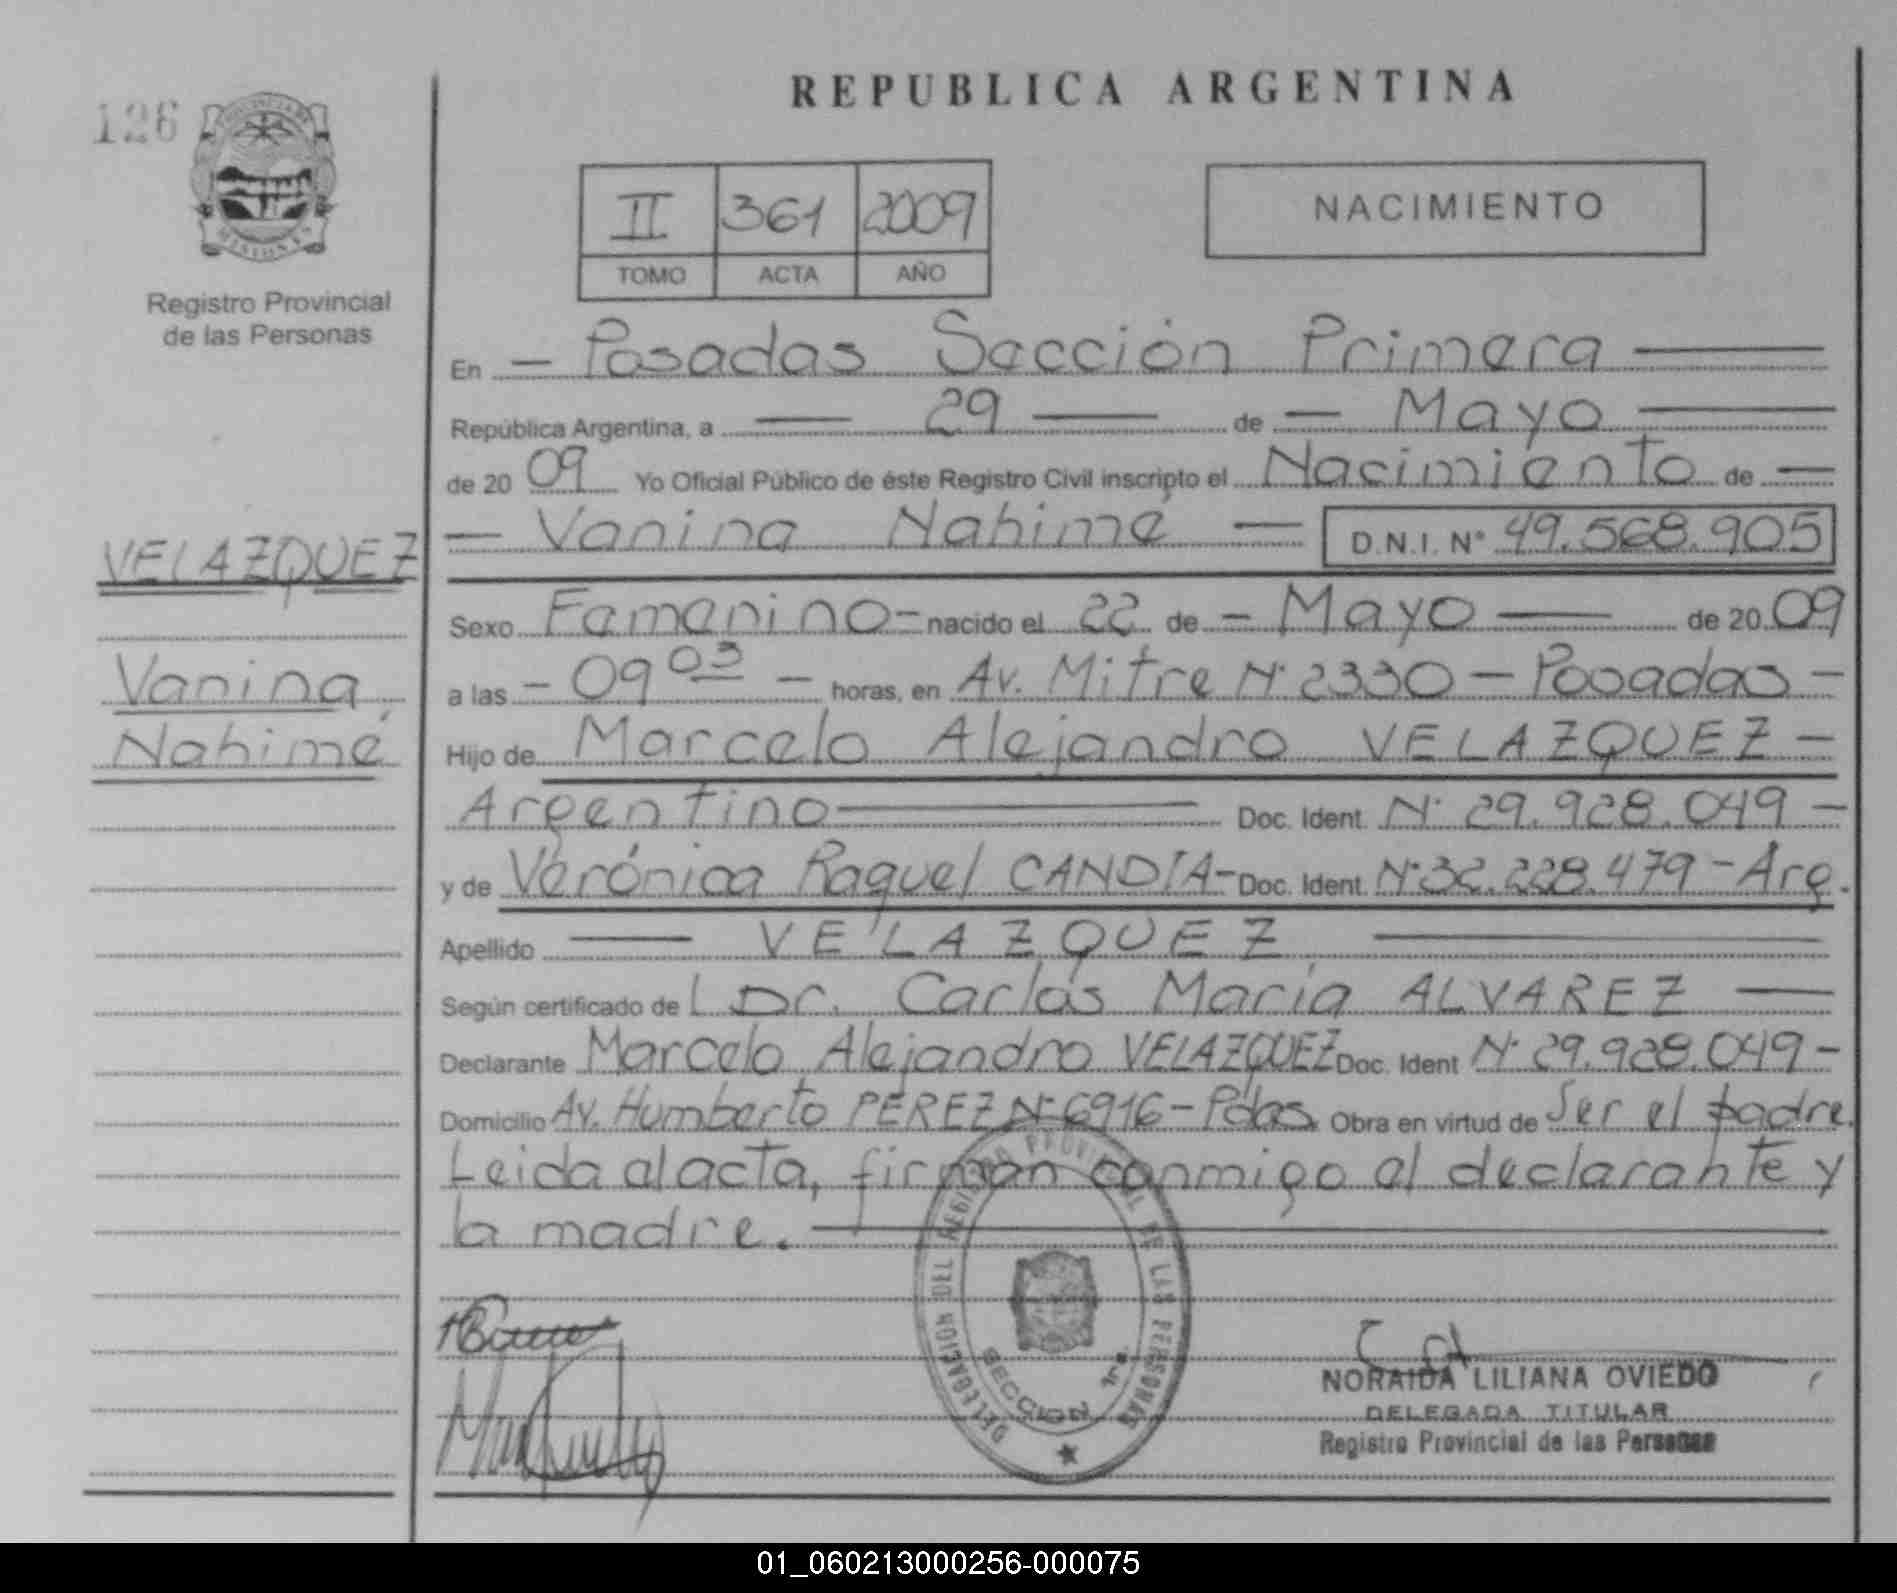 REPUBLICA ARGENTINA
126
PROVINCIA DE
MISIONES
Registro Provincial
de las Personas
II 361 2009
TOMO ACTA AÑO
NACIMIENTO
En — Posadas Sección Primera —
República Argentina, a — 29 — de — Mayo —
de 20 09 Yo Oficial Público de éste Registro Civil inscripto el Nacimiento de —
— Vanina Nahimé — D.N.I. N° 49.568.905
VELAZQUEZ
Vanina
Nahimé
Sexo Femenino - nacido el 22 de - Mayo — de 20 09
a las - 09 03 - horas, en Av. Mitre N° 2330 - Posadas -
Hijo de Marcelo Alejandro VELAZQUEZ -
Argentino — Doc. Ident. N° 29.928.049 -
y de Verónica Raquel CANDIA - Doc. Ident. N° 32.228.479 - Arg.
Apellido — VELAZQUEZ —
Según certificado de l Dr. Carlos María ALVAREZ —
Declarante Marcelo Alejandro VELAZQUEZ Doc. Ident N° 29.928.049 -
Domicilio Av. Humberto PEREZ N° 6916 - Pdas. Obra en virtud de Ser el padre.
Leida el acta, firman conmigo el declarante y
la madre. —
DELEGACION DEL REGISTRO PROVINCIAL DE LAS PERSONAS
SECCION 1ra.
NORAIDA LILIANA OVIEDO
DELEGADA TITULAR
Registro Provincial de las Personas
01_060213000256-000075